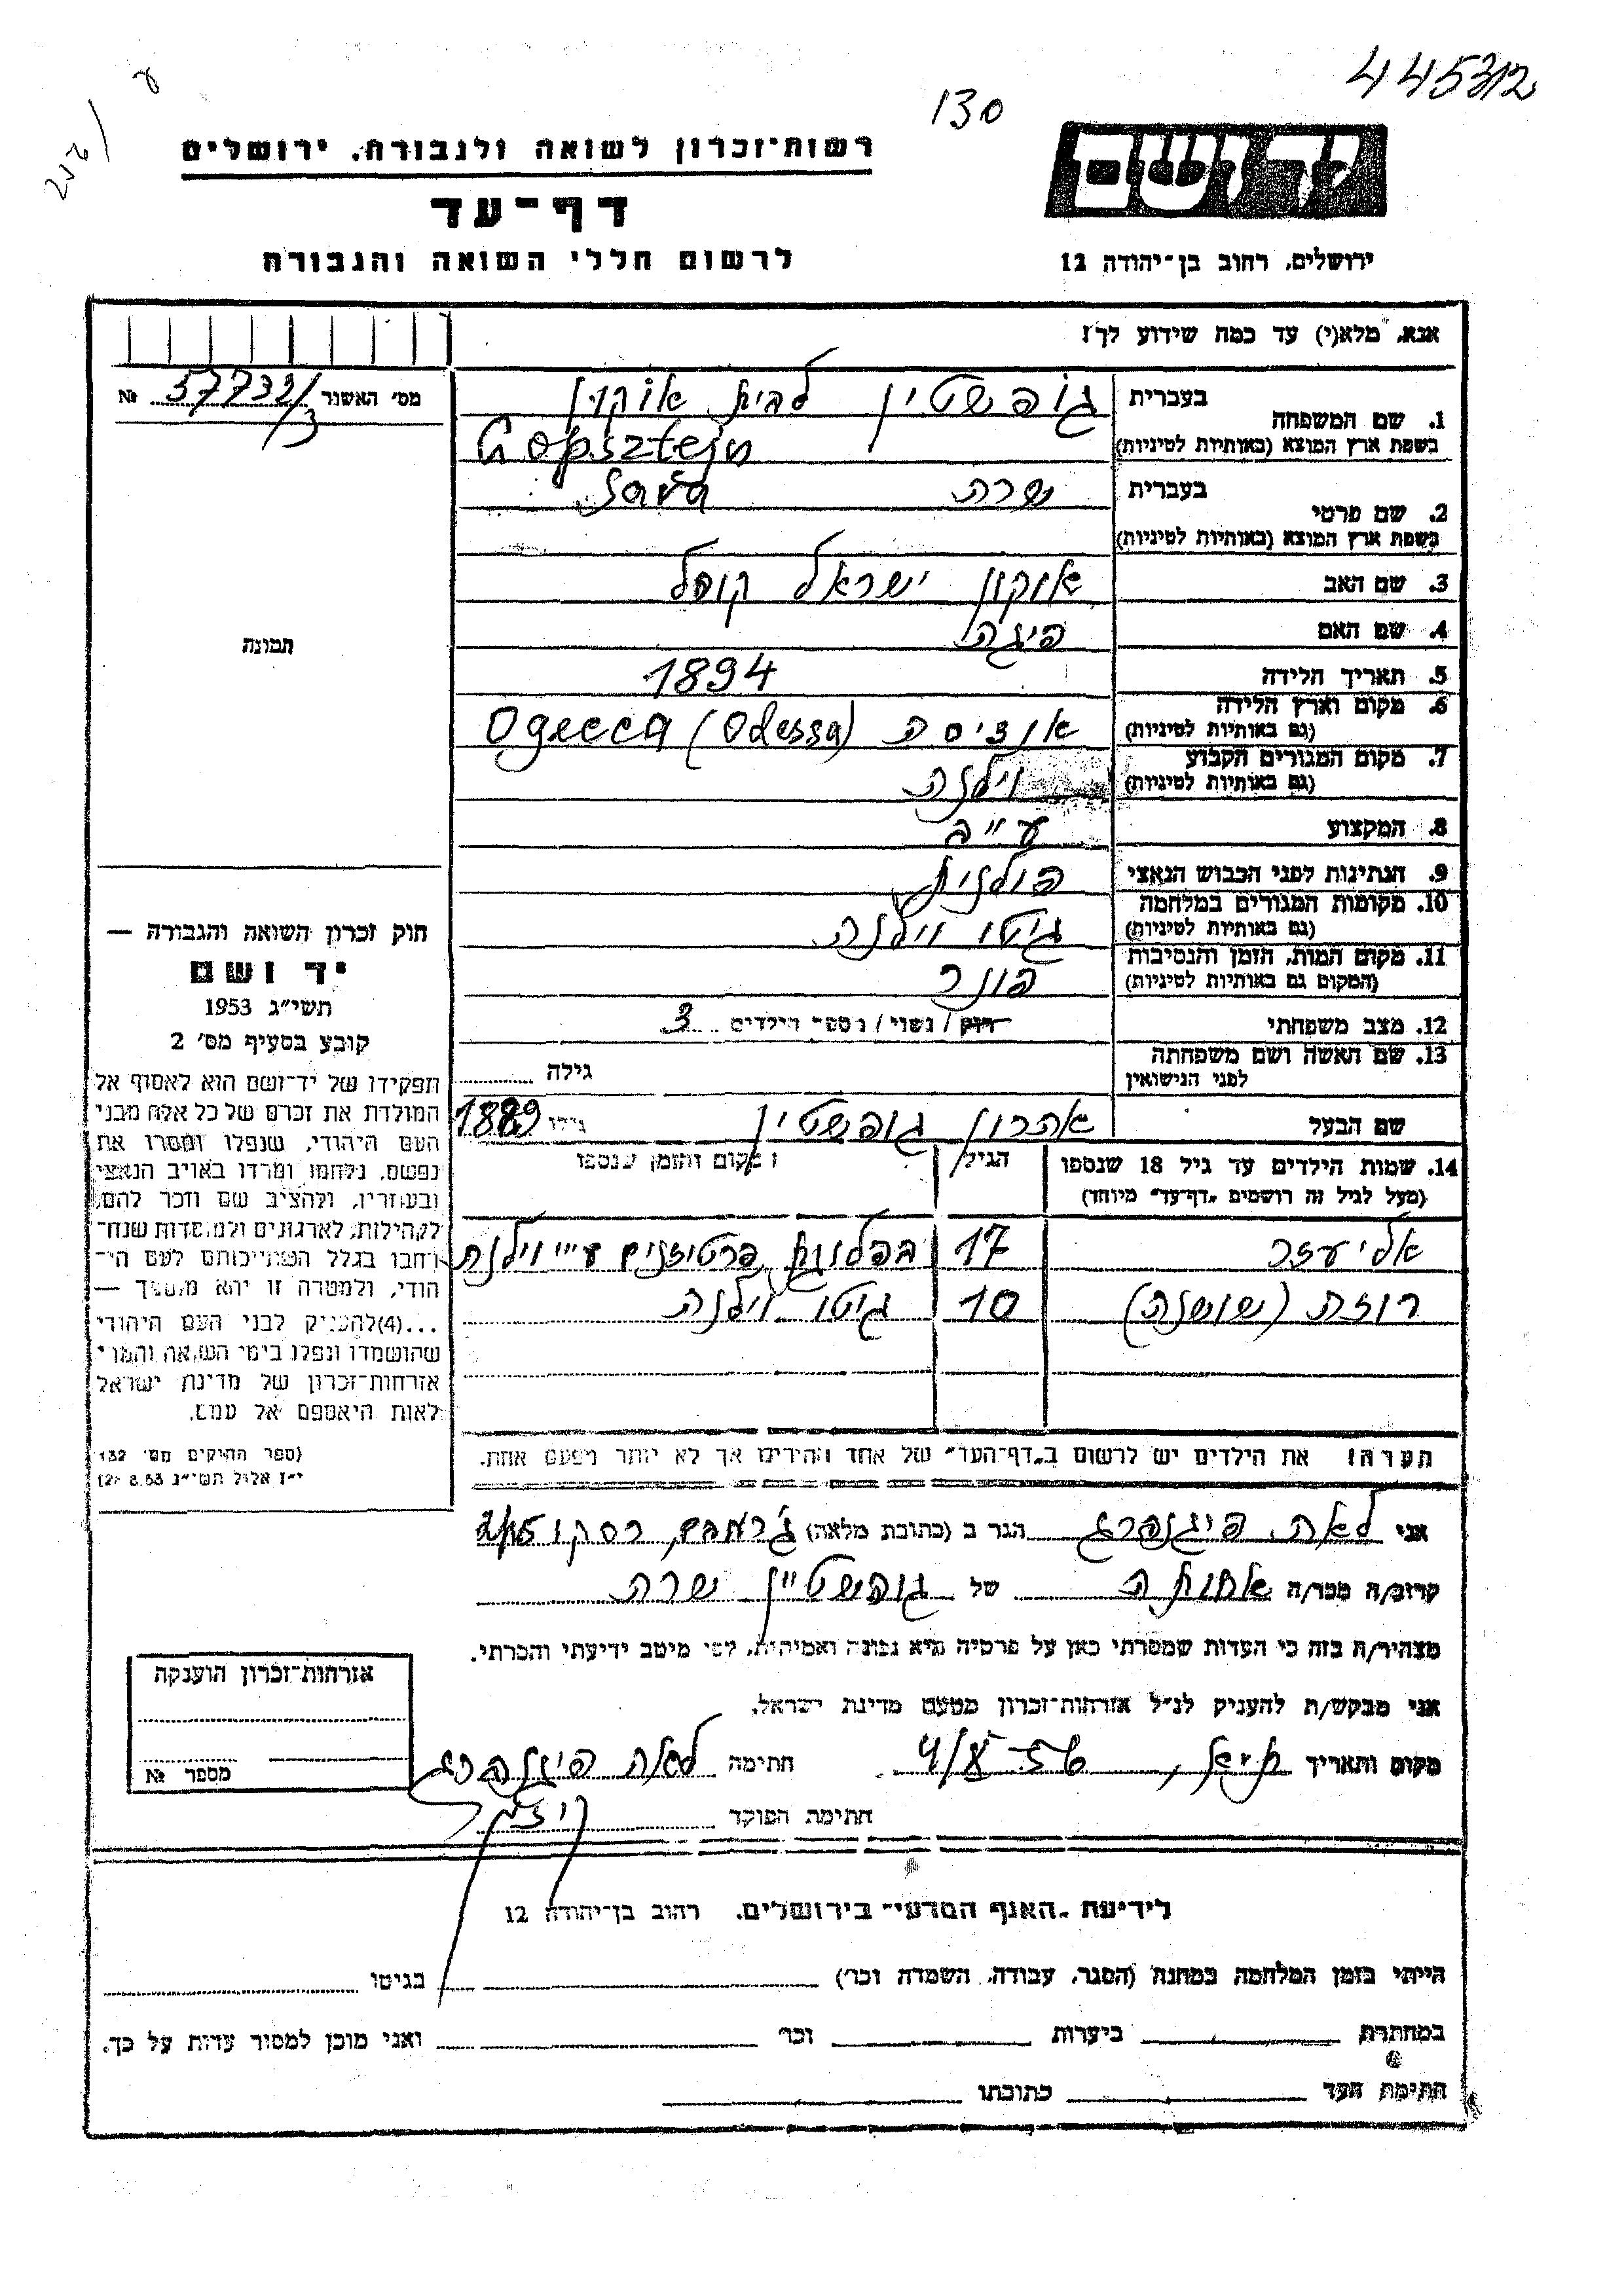 445312
130
יד ושם
רשות־זכרון לשואה ולגבורה, ירושלים
דף־עד
לרשום חללי השואה והגבורה
ירושלים, רחוב בן־יהודה 12
אנא, מלא(י) עד כמה שידוע לך!
מס׳ האשנר 57732/3 №
תמונה
1. שם המשפחה
בעברית גופשטין לבית אוקון
בשפת ארץ המוצא (באותיות לטיניות) Gopsztejn
2. שם פרטי
בעברית שרה Sara
בשפת ארץ המוצא (באותיות לטיניות)
3. שם האב אוקון ישראל קופל
4. שם האם פיגה
5. תאריך הלידה 1894
6. מקום וארץ הלידה (גם באותיות לטיניות) אודיסה (Odessa) Ogecca
7. מקום המגורים הקבוע (גם באותיות לטיניות) וילנה
8. המקצוע ע״ב
9. הנתינות לפני הכבוש הנאצי פולנית
10. מקומות המגורים במלחמה (גם באותיות לטיניות) גיטו וילנה
11. מקום המות, הזמן והנסיבות (המקום גם באותיות לטיניות) פונר
12. מצב משפחתי רווק / נשוי / מספר הילדים 3
13. שם האשה ושם משפחתה לפני הנישואין גילה
שם הבעל אהרון גופשטין גילו 1889
14. שמות הילדים עד גיל 18 שנספו הגיל מקום והזמן שנספו
(מעל לגיל זה רושמים „דף־עד״ מיוחד)
אליעזר 17 בפלוגות פרטיזנים ע״י וילנה
רוזה (שושנה) 10 גיטו וילנה
הערה! את הילדים יש לרשום ב„דף־העד״ של אחד ההורים אך לא יותר מפעם אחת.
חוק זכרון השואה והגבורה —
יד ושם
תשי״ג 1953
קובע בסעיף מס׳ 2
תפקידו של יד־ושם הוא לאסוף אל
המולדת את זכרם של כל אלה מבני
העם היהודי, שנפלו ומסרו את
נפשם, נלחמו ומרדו באויב הנאצי
ובעוזריו, ולהציב שם וזכר להם,
לקהילות, לארגונים ולמוסדות שנח־
רחבו בגלל השתייכותם לעם הי־
הודי, ולמטרה זו יהא מוסמך —
...(4) להעניק לבני העם היהודי
שהושמדו ונפלו בימי השואה והמרי
אזרחות־זכרון של מדינת ישראל
לאות היאספם אל עמם.
(ספר החוקים מס׳ 132
י״ז אלול תשי״ג 28.8.53)
אני לאה פיגנברג הגר ב (כתובת מלאה) רסקו
קרוב/ה מכר/ה אחותה של גופשטיין שרה
מצהיר/ה בזה כי העדות שמסרתי כאן על פרטיה היא נכונה ואמיתית, לפי מיטב ידיעתי והכרתי.
אני מבקש/ת להעניק לנ״ל אזרחות־זכרון מטעם מדינת ישראל.
מקום ותאריך חתימה לאה פיגנברג
חתימת הפוקד
אזרחות־זכרון הוענקה
מספר №
לידיעת „האגף המדעי״ בירושלים, רחוב בן־יהודה 12
הייתי בזמן המלחמה במחנה (הסגר, עבודה, השמדה וכו׳) בגיטו
במחתרת ביערות וכו׳ ואני מוכן למסור עדות על כך.
חתימת העד כתובתו